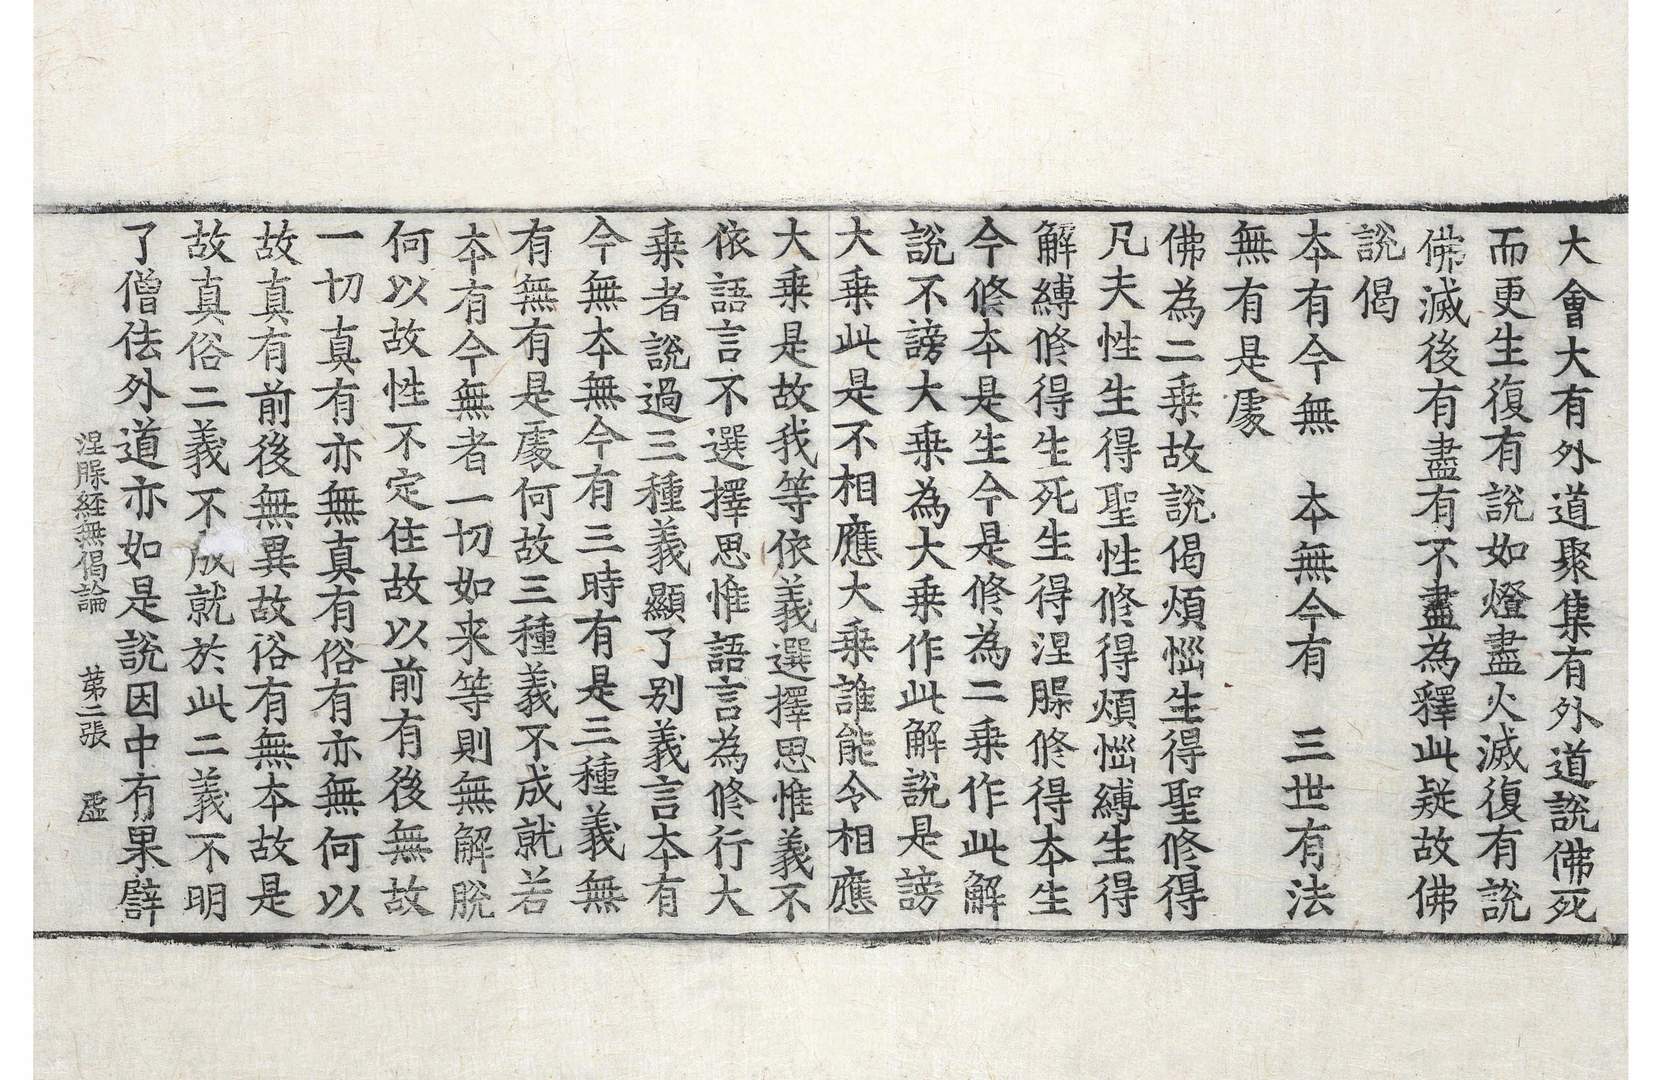 大會大有外道聚集有外道說佛死
而更生復有說如燈盡火滅復有說
佛滅後有盡有不盡為釋此疑故佛
說偈
本有今無　本無今有　三世有法
無有是處
佛為二乗故說偈煩惱生得聖修得
凡夫性生得聖性修得煩惱縛生得
解縛修得生死生得涅脲修得本生
今修本是生今是修為二乗作此解
說不謗大乗為大乗作此解說是謗
大乗此是不相應大乗誰能令相應
大乗是故我等依義選擇思惟義不
依語言不選擇思惟語言為修行大
乗者說過三種義顯了别義言本有
今無本無今有三時有是三種義無
有無有是處何故三種義不成就若
本有今無者一切如来等則無解脫
何以故性不定住故以前有後無故
一切真有亦無真有俗有亦無何以
故真有前後無異故俗有無本故是
故真俗二義不成就於此二義不明
了僧佉外道亦如是說因中有果譬
涅脲経無偈論　苐二張　虛